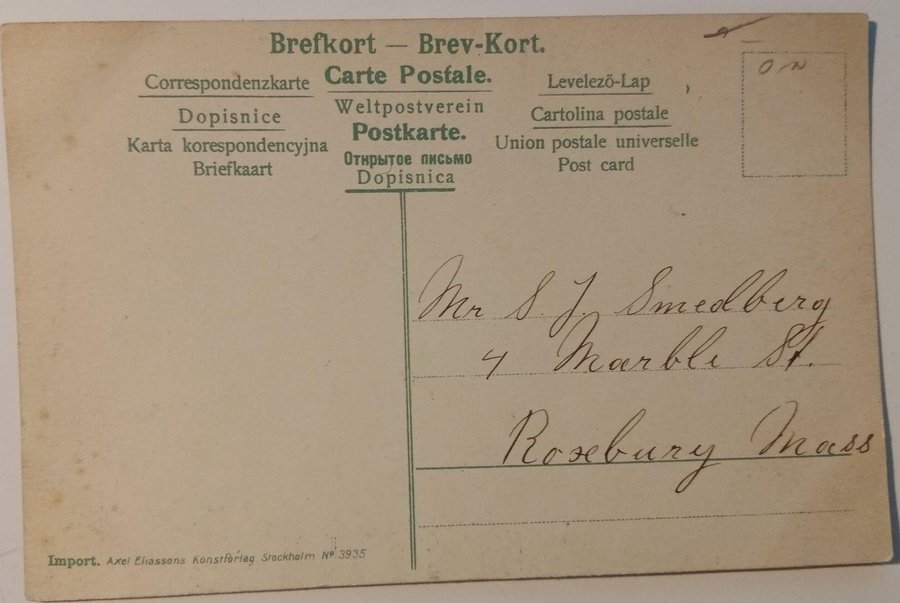 Brefkort — Brev-Kort.
Correspondenzkarte
Carte Postale.
Levelezö-Lap
Dopisnice
Weltpostverein
Cartolina postale
Karta korespondencyjna
Postkarte.
Union postale universelle
Briefkaart
Открытое письмо
Post card
Dopisnica
Mr S. J. Smedberg
4 Marble St.
Roxebury Mass
Import. Axel Eliassons Konstförlag Stockholm Nº 3935